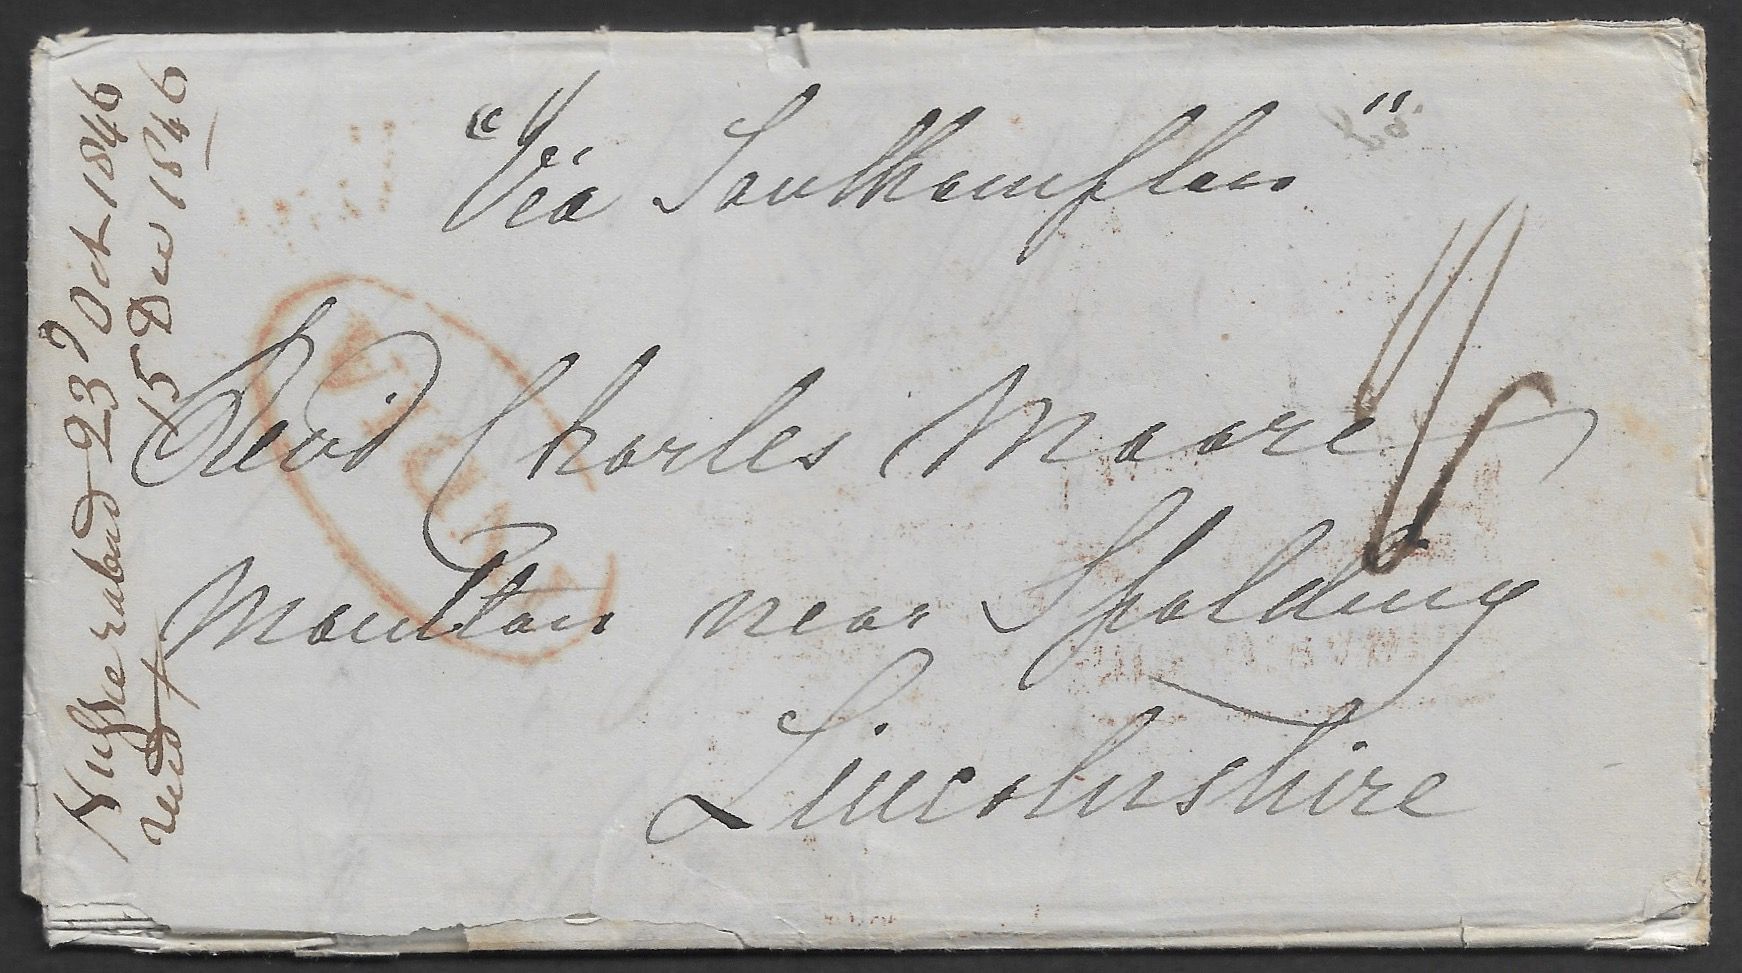 "Via Southampton"
Revd Charles Moore
Moulton near Spalding
Lincolnshire
Nusseerabad 23d Oct 1846
recd 15 Dec 1846
INDIA